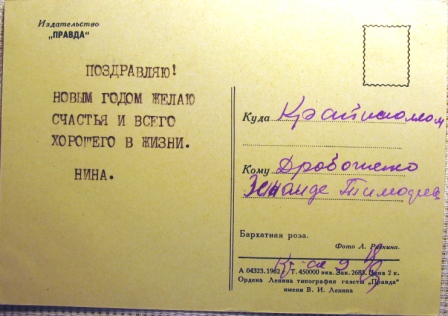 Издательство
„ПРАВДА"
ПОЗДРАВЛЯЮ!
НОВЫМ ГОДОМ ЖЕЛАЮ
СЧАСТЬЯ И ВСЕГО
ХОРОШЕГО В ЖИЗНИ.
НИНА.
Куда Крайисполком
Кому Дроботенко
Зинаиде Тимофеев
Бархатная роза.
Фото Л. Раскина.
А 04323. 1962 г. Т. 450000 экз. Зак. 2683. Цена 2 к.
Ордена Ленина типография газеты „Правда"
имени В. И. Ленина